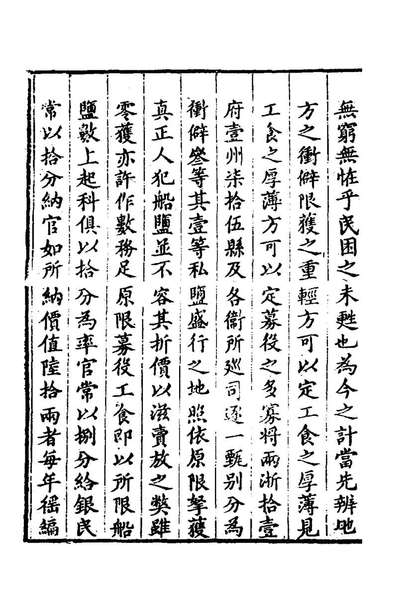 無窮無怪乎民困之未甦也為今之計當先辨地
方之衝僻限獲之重輕方可以定工食之厚薄見
工食之厚薄方可以定募役之多寡將兩浙拾壹
府壹州柒拾伍縣及各衞所廵司逐一甄别分為
衝僻叄等其壹等私鹽盛行之地照依原限拏獲
真正人犯船鹽並不容其折價以滋賣放之獘雖
零獲亦許作數務足原限募役工食即以所限船
鹽數上起科俱以拾分為率官常以捌分給銀民
常以拾分納官如所納價值陸拾兩者每年徭編